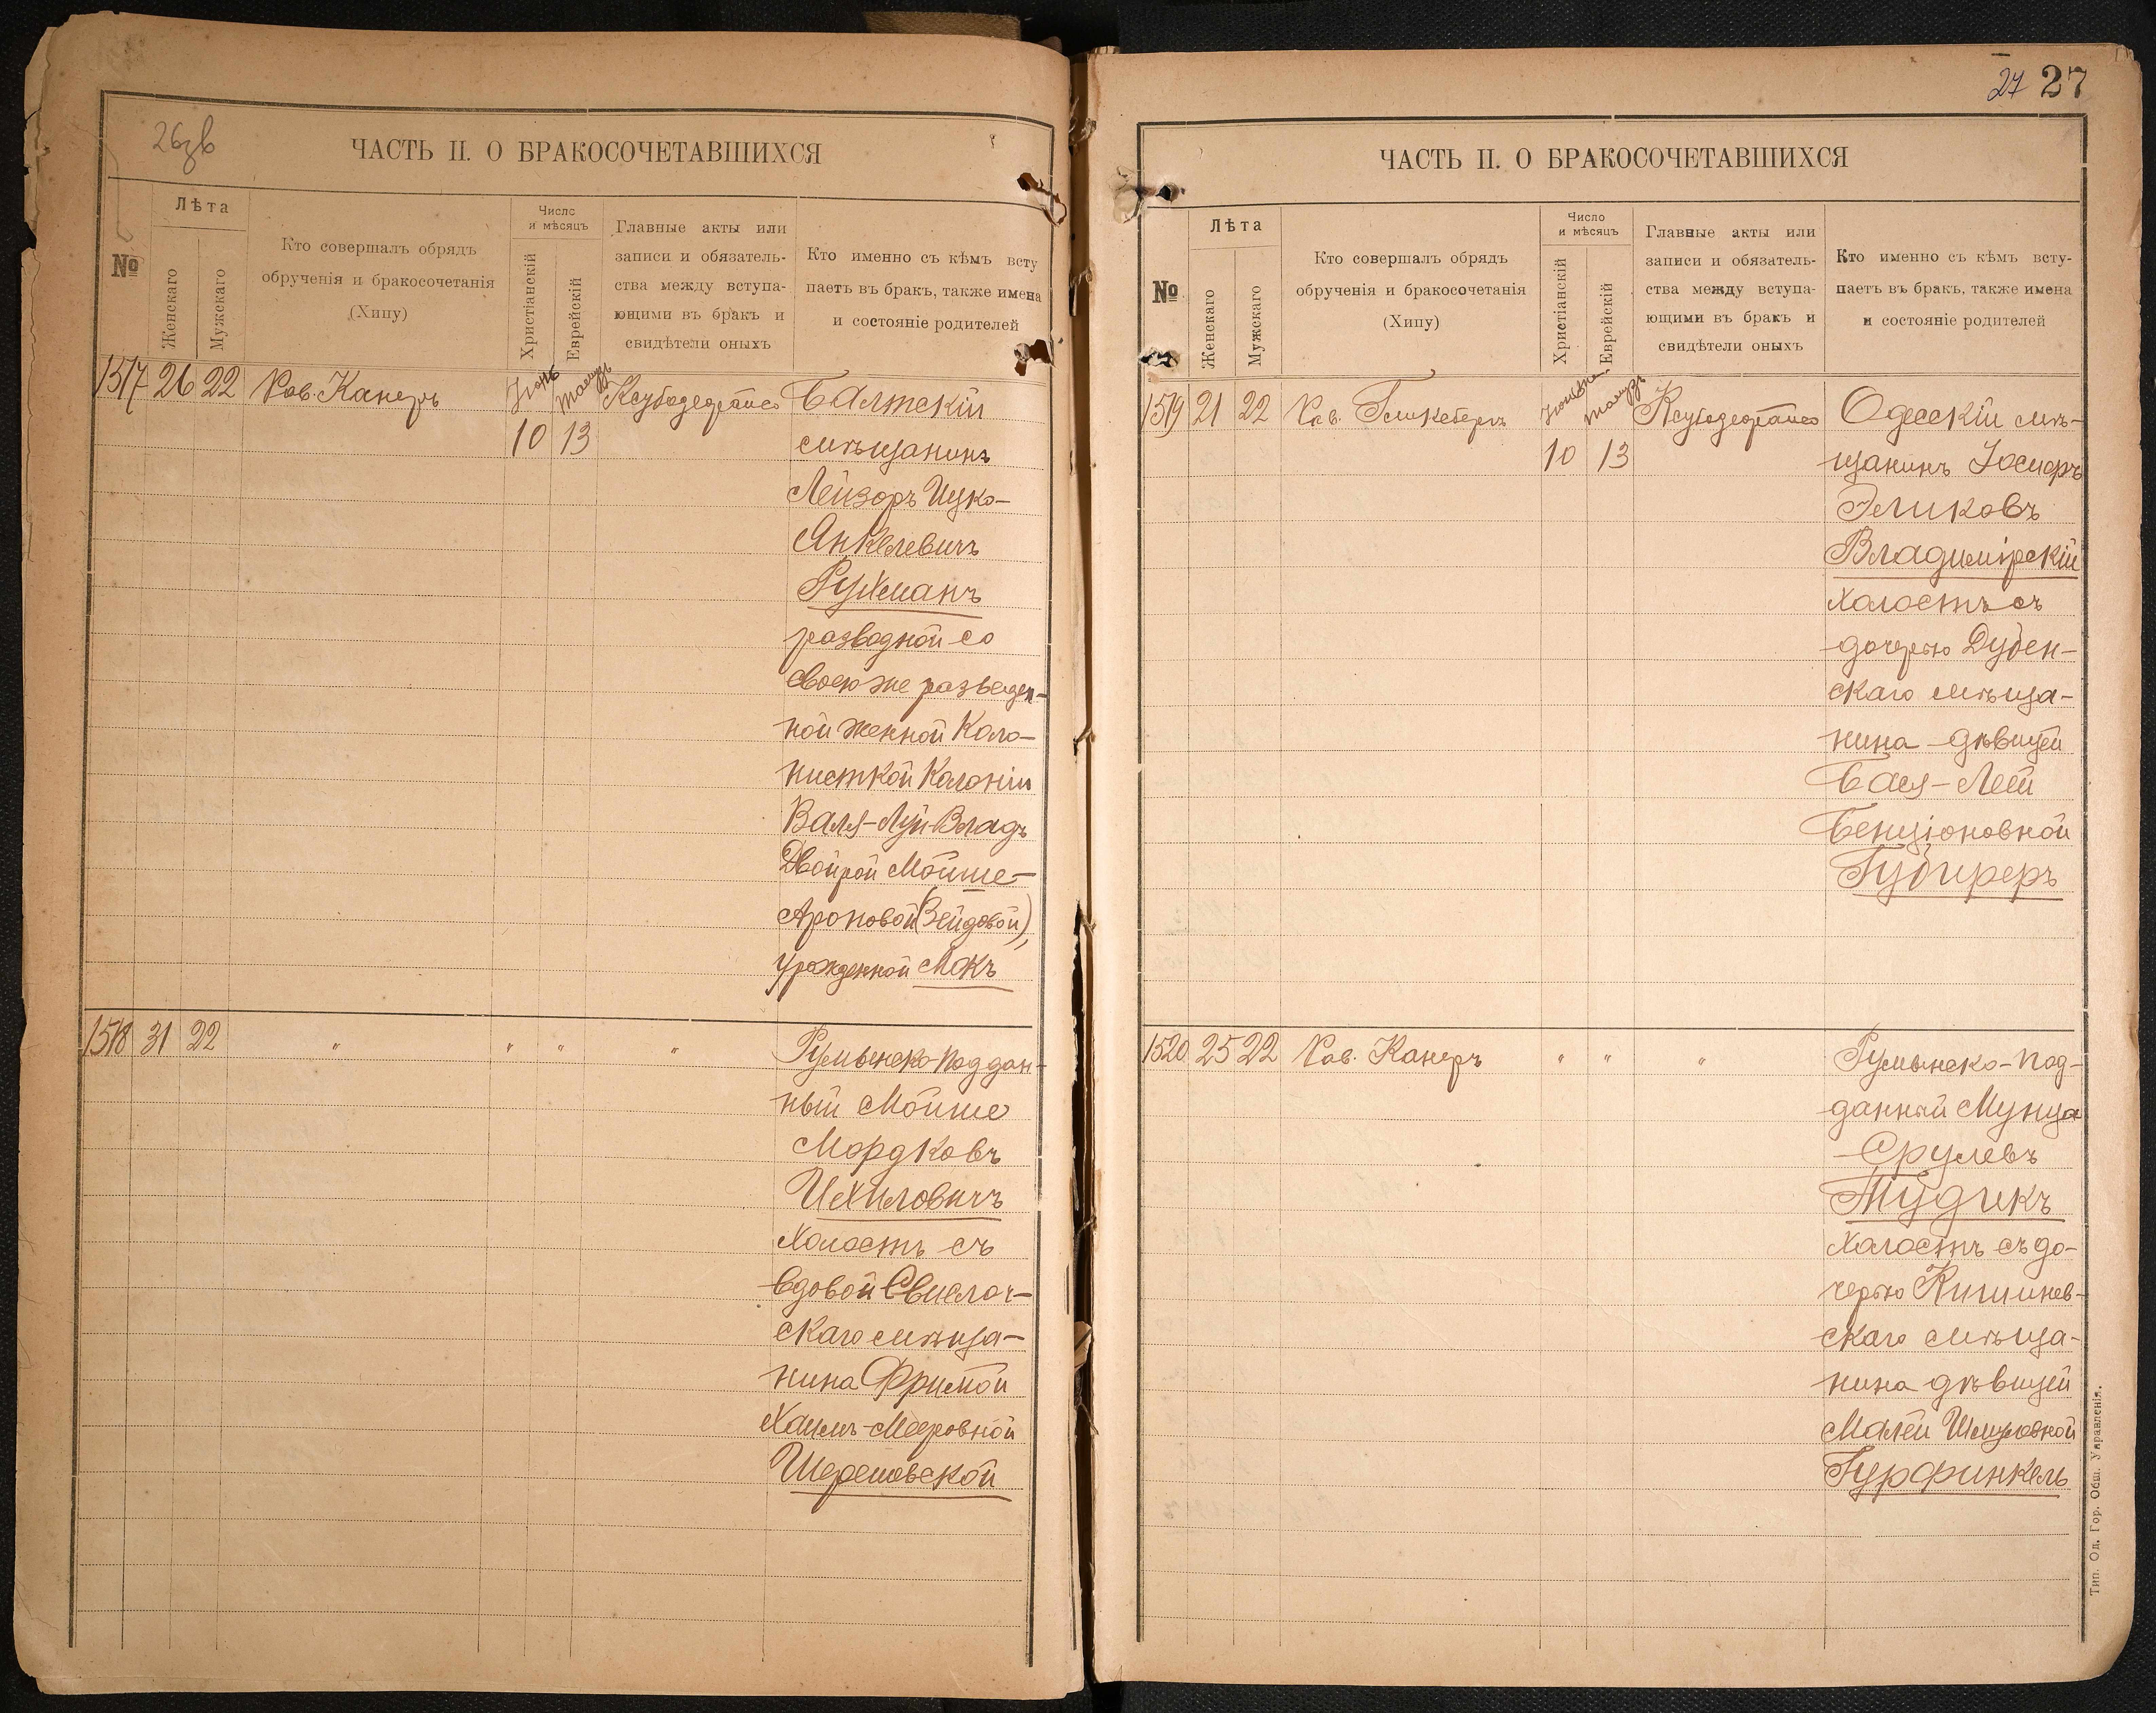 26зв
ЧАСТЬ II. О БРАКОСОЧЕТАВШИХСЯ
№
Лѣта
Женскаго
Мужскаго
Кто совершалъ обрядъ
обрученія и бракосочетанія
(Хипу)
Число
и мѣсяцъ
Христіанскій
Еврейскій
Главные акты или
записи и обязатель-
ства между вступа-
ющими въ бракъ и
свидѣтели оныхъ
Кто именно съ кѣмъ всту
паетъ въ бракъ, также имена
и состояніе родителей
1517 26 22 Рав. Канеръ Іюнь Тамузъ Балтскій
10 13 мѣщанинъ
Лейзоръ Ицко-
Анкелевичъ
Рухманъ
разводной со
своею же разведен-
ной женной Коло-
нисткой Колоніи
Валя-Луй-Владъ
Двойрой Мойше-
Ароновой (Зейдовой),
урожденной Мокъ
1518 31 22 " " " " Румынско-поддан-
ный Мойше
Мордковъ
Ихиловичъ
Холостъ съ
вдовой Свислоч-
скаго мѣща-
нина Фримой
Хаимъ-Мееровной
Шерешовской
27 27
ЧАСТЬ II. О БРАКОСОЧЕТАВШИХСЯ
№
Лѣта
Женскаго
Мужскаго
Кто совершалъ обрядъ
обрученія и бракосочетанія
(Хипу)
Число
и мѣсяцъ
Христіанскій
Еврейскій
Главные акты или
записи и обязатель-
ства между вступа-
ющими въ бракъ и
свидѣтели оныхъ
Кто именно съ кѣмъ всту-
паетъ въ бракъ, также имена
и состояніе родителей
1519 21 22 Рав. Тамузъ Одесскій мѣ-
10 13 щанинъ Іосифъ
Эликовъ
Владимірскій
Холостъ съ
дочерью Дубен-
скаго мѣща-
нина дѣвицей
Бася-Лей
Бенціоновной
1520 25 22 Рав. Канеръ " " " Румынско-под-
данный Мунца
Срулевъ
Тудикъ
Холостъ съ до-
черью Кишинев-
скаго мѣща-
нина дѣвицей
Малей Шмуловной
Гурфинкель
Тип. Од. Гор. Общ. Управленія.